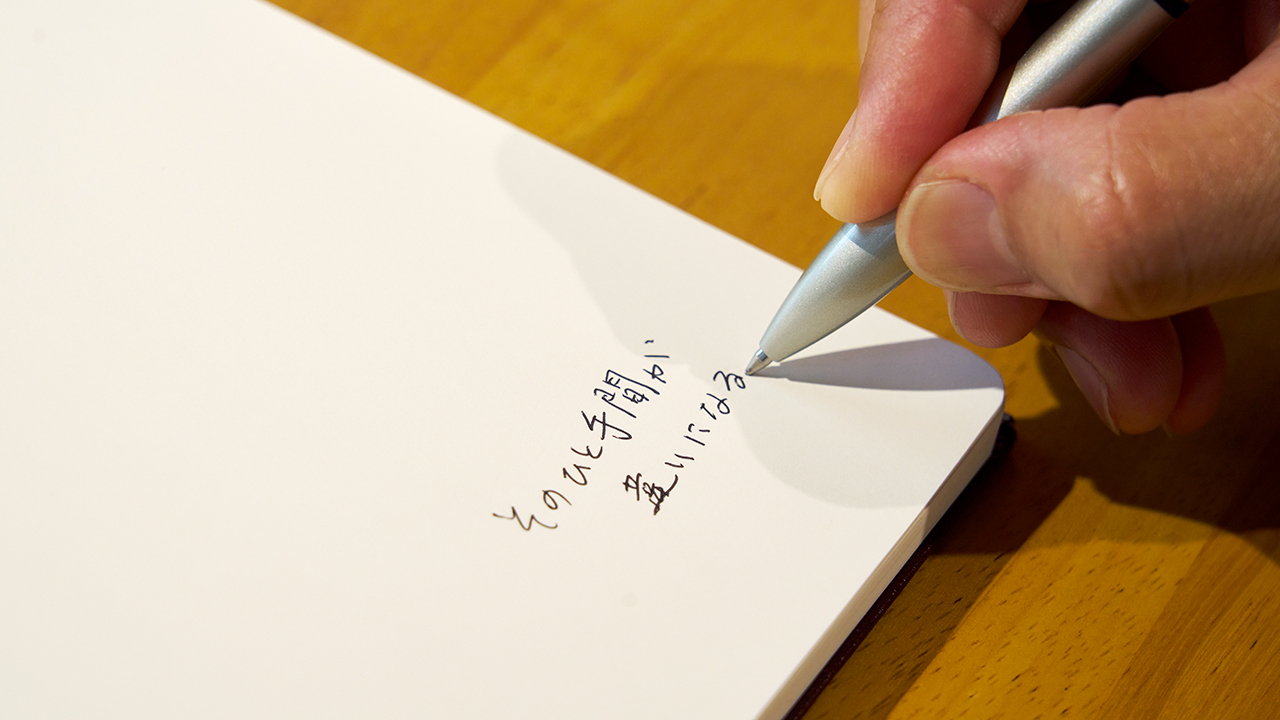 そのひと手間が
違いになる